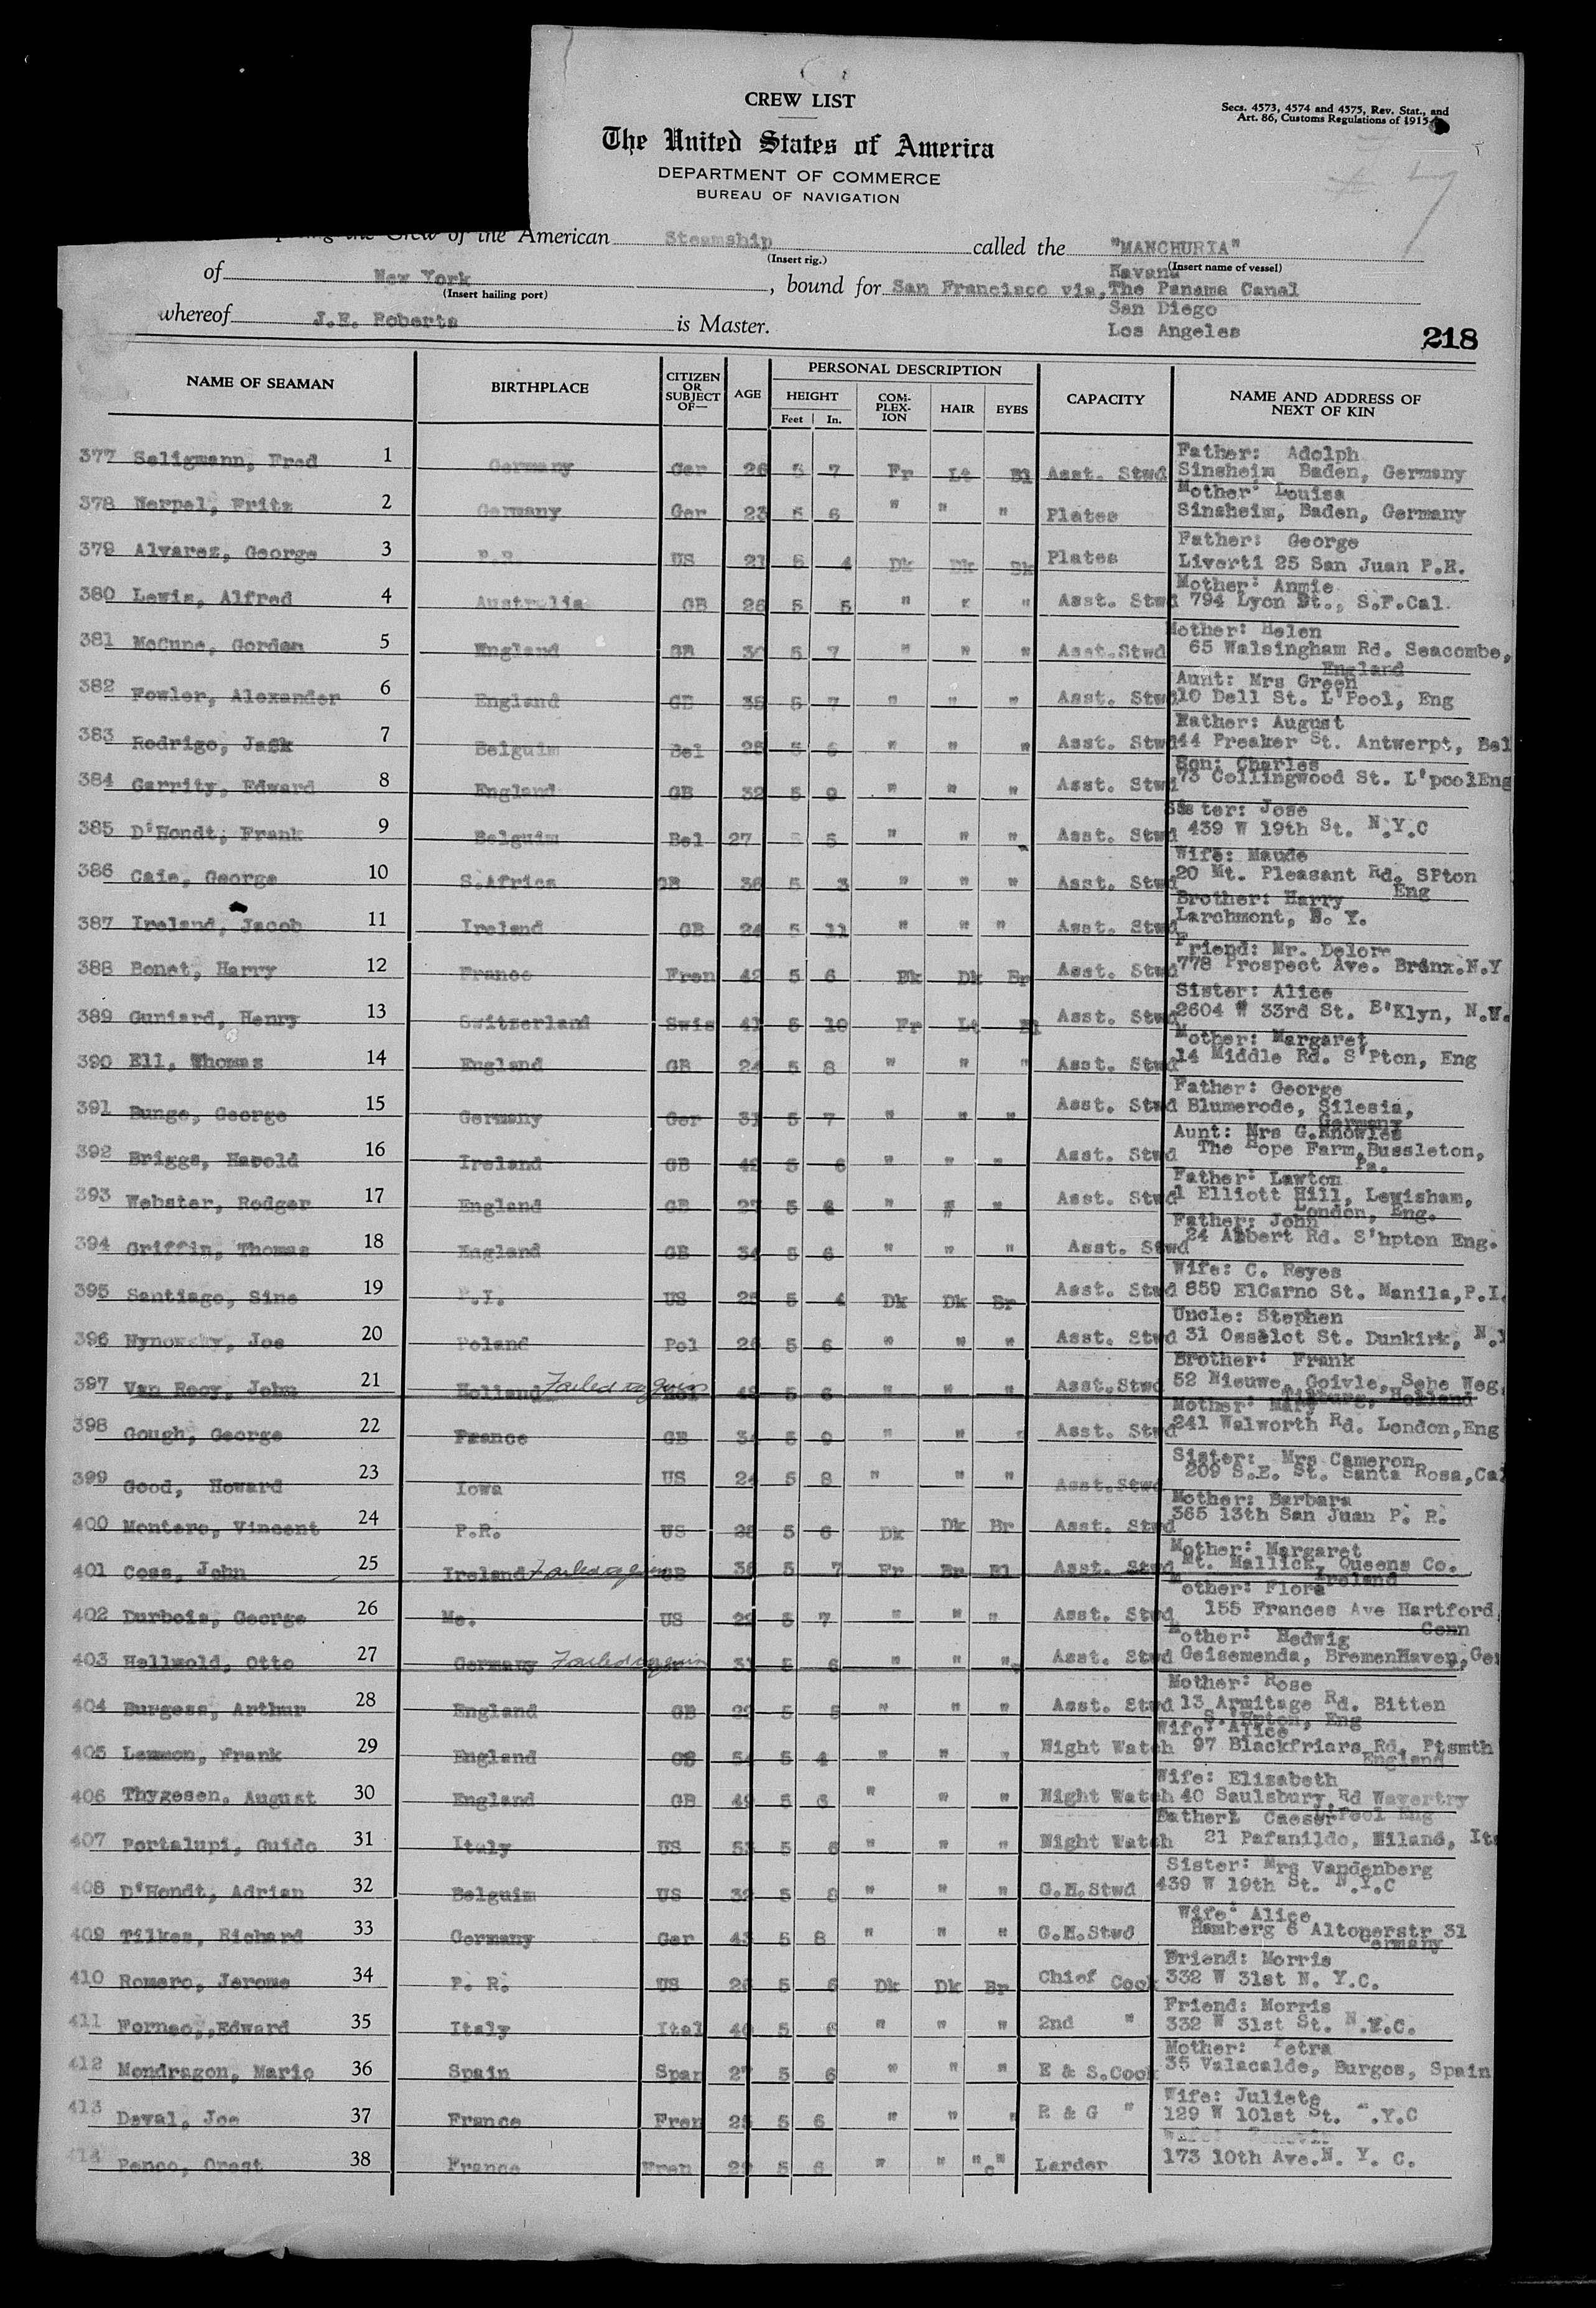 CREW LIST
Secs. 4573, 4574 and 4575, Rev. Stat., and
Art. 86, Customs Regulations of 1915
The United States of America
DEPARTMENT OF COMMERCE
BUREAU OF NAVIGATION
the Crew of the American Steamship called the "MANCHURIA"
(Insert rig.) (Insert name of vessel)
of New York, bound for San Francisco via, The Panama Canal
(Insert hailing port)
San Diego
whereof J.E. Roberts is Master.
Los Angeles
218
NAME OF SEAMAN BIRTHPLACE CITIZEN OR SUBJECT OF— AGE PERSONAL DESCRIPTION CAPACITY NAME AND ADDRESS OF NEXT OF KIN
HEIGHT COM-PLEX-ION HAIR EYES
Feet In.
Father: Adolph
377 Seligmann, Fred 1 Germany Ger 26 5 7 Fr Lt Bl Asst. Stwd Sinsheim Baden, Germany
Mother: Louisa
378 Nerpel, Fritz 2 Germany Ger 23 5 6 " " " Plates Sinsheim, Baden, Germany
Father: George
379 Alvarez, George 3 P.R. US 21 5 4 Dk Dk Bk Plates Liverti 25 San Juan P.R.
Mother: Annie
380 Lewis, Alfred 4 Australia GB 26 5 5 " " " Asst. Stwd 794 Lyon St., S.F.Cal.
Mother: Helen
381 McCune, Gordon 5 England GB 30 5 7 " " " Asst.Stwd 65 Walsingham Rd. Seacombe,
England
Aunt: Mrs Green
382 Fowler, Alexander 6 England GB 35 5 7 " " " Asst. Stwd 10 Dell St. L'Pool, Eng
Father: August
383 Rodrigo, Jack 7 Belguim Bel 25 5 6 " " " Asst. Stwd 44 Preaker St. Antwerpt, Bel
Son: Charles
384 Garrity, Edward 8 England GB 32 5 9 " " " Asst. Stwd 73 Collingwood St. L'poolEng
Sister: Jose
385 D'Hondt, Frank 9 Belguim Bel 27 5 5 " " " Asst. Stwd 439 W 19th St. N.Y.C
Wife: Maude
386 Caie, George 10 S.Africa GB 36 5 3 " " " Asst. Stwd 20 Mt. Pleasant Rd. SPton
Eng
Brother: Harry
387 Ireland, Jacob 11 Ireland GB 24 5 11 " " " Asst. Stwd Larchmont, N. Y.
Friend: Mr. Delorr
388 Bonet, Harry 12 France Fren 42 5 6 Dk Dk Br Asst. Stwd 778 Prospect Ave. Bronx.N.Y
Sister: Alice
389 Guniard, Henry 13 Switzerland Swis 41 5 10 Fr Lt Bl Asst. Stwd 2604 W 33rd St. B'Klyn, N.Y.
Mother: Margaret
390 Ell, Thomas 14 England GB 24 5 8 " " " Asst. Stwd 14 Middle Rd. S'Pton, Eng
Father: George
391 Bunge, George 15 Germany Ger 31 5 7 " " " Asst. Stwd Blumerode, Silesia,
Germany
Aunt: Mrs G.Knowles
392 Briggs, Harold 16 Ireland GB 42 5 6 " " " Asst. Stwd The Hope Farm,Bussleton,
Pa.
Father: Lawton
393 Webster, Rodger 17 England GB 27 5 6 " " " Asst. Stwd 1 Elliott Hill, Lewisham,
London, Eng.
Father: John
394 Griffin, Thomas 18 England GB 34 5 6 " " " Asst. Stwd 24 Albert Rd. S'hpton Eng.
Wife: C. Reyes
395 Santiago, Sine 19 P.I. US 25 5 4 Dk Dk Br Asst. Stwd 859 ElCarno St. Manila,P.I.
Uncle: Stephen
396 Joe 20 Poland Pol 26 5 6 " " " Asst. Stwd 31 Osselot St. Dunkirk, N.Y
Brother: Frank
397 Van Rooy, John 21 Holland Failed to join Hol 48 5 6 " " " Asst.Stwd 52 Nieuwe, Goivle, Sehe Weg,
Tilburg, Holland
Mother: Mary
398 Gough, George 22 France GB 34 5 9 " " " Asst. Stwd 241 Walworth Rd. London,Eng
Sister: Mrs Cameron
399 Good, Howard 23 Iowa US 24 5 8 " " " Asst.Stwd 209 S.E. St. Santa Rosa,Cal
Mother: Barbara
400 Montero, Vincent 24 P.R. US 28 5 6 Dk Dk Br Asst. Stwd 365 13th San Juan P. R.
Mother: Margaret
401 Coss, John 25 Ireland Failed to join GB 36 5 7 Fr Br Bl Asst. Stwd Mt. Mallick, Queens Co.
Ireland
Mother: Flora
402 Durbois, George 26 Me. US 22 5 7 " " " Asst. Stwd 155 Frances Ave Hartford
Conn
Mother: Hedwig
403 Hellwold, Otto 27 Germany Failed to join 31 5 6 " " " Asst. Stwd Geisemenda, BremenHaven,Ger
Mother: Rose
404 Burgess, Arthur 28 England GB 22 5 5 " " " Asst. Stwd 13 Armitage Rd. Bitten
S.'Hpton, Eng
Wife: Alice
405 Lemmon, Frank 29 England GB 54 5 4 " " " Night Watch 97 Blackfriars Rd. Ptsmth
England
Wife: Elizabeth
406 Thygesen, August 30 England GB 49 5 6 " " " Night Watch 40 Saulsbury Rd Wavertry
L'Pool Eng
Father: Caeser
407 Portalupi, Guido 31 Italy US 53 5 6 " " " Night Watch 21 Pafanildo, Milano, Ita
Sister: Mrs Vandenberg
408 D'Hondt, Adrian 32 Belguim US 32 5 8 " " " G.M.Stwd 439 W 19th St. N.Y.C
Wife: Alice
409 Tilkes, Richard 33 Germany Ger 43 5 8 " " " G.M.Stwd Hamberg 6 Altonerstr 31
Germany
Friend: Morris
410 Romero, Jerome 34 P. R. US 26 5 6 Dk Dk Br Chief Cook 332 W 31st N. Y.C.
Friend: Morris
411 Forneo,,Edward 35 Italy Ital 40 5 6 " " " 2nd " 332 W 31st St. N.Y.C.
Mother: Petra
412 Mondragon, Mario 36 Spain Span 27 5 6 " " " E & S.Cook 35 Valacalde, Burgos, Spain
Wife: Juliete
413 Deval, Joe 37 France Fren 25 5 6 " " " R & G " 129 W 101st St. N.Y.C
414 Penco, Orest 38 France Fren 29 5 6 " " " Larder 173 10th Ave.N. Y. C.